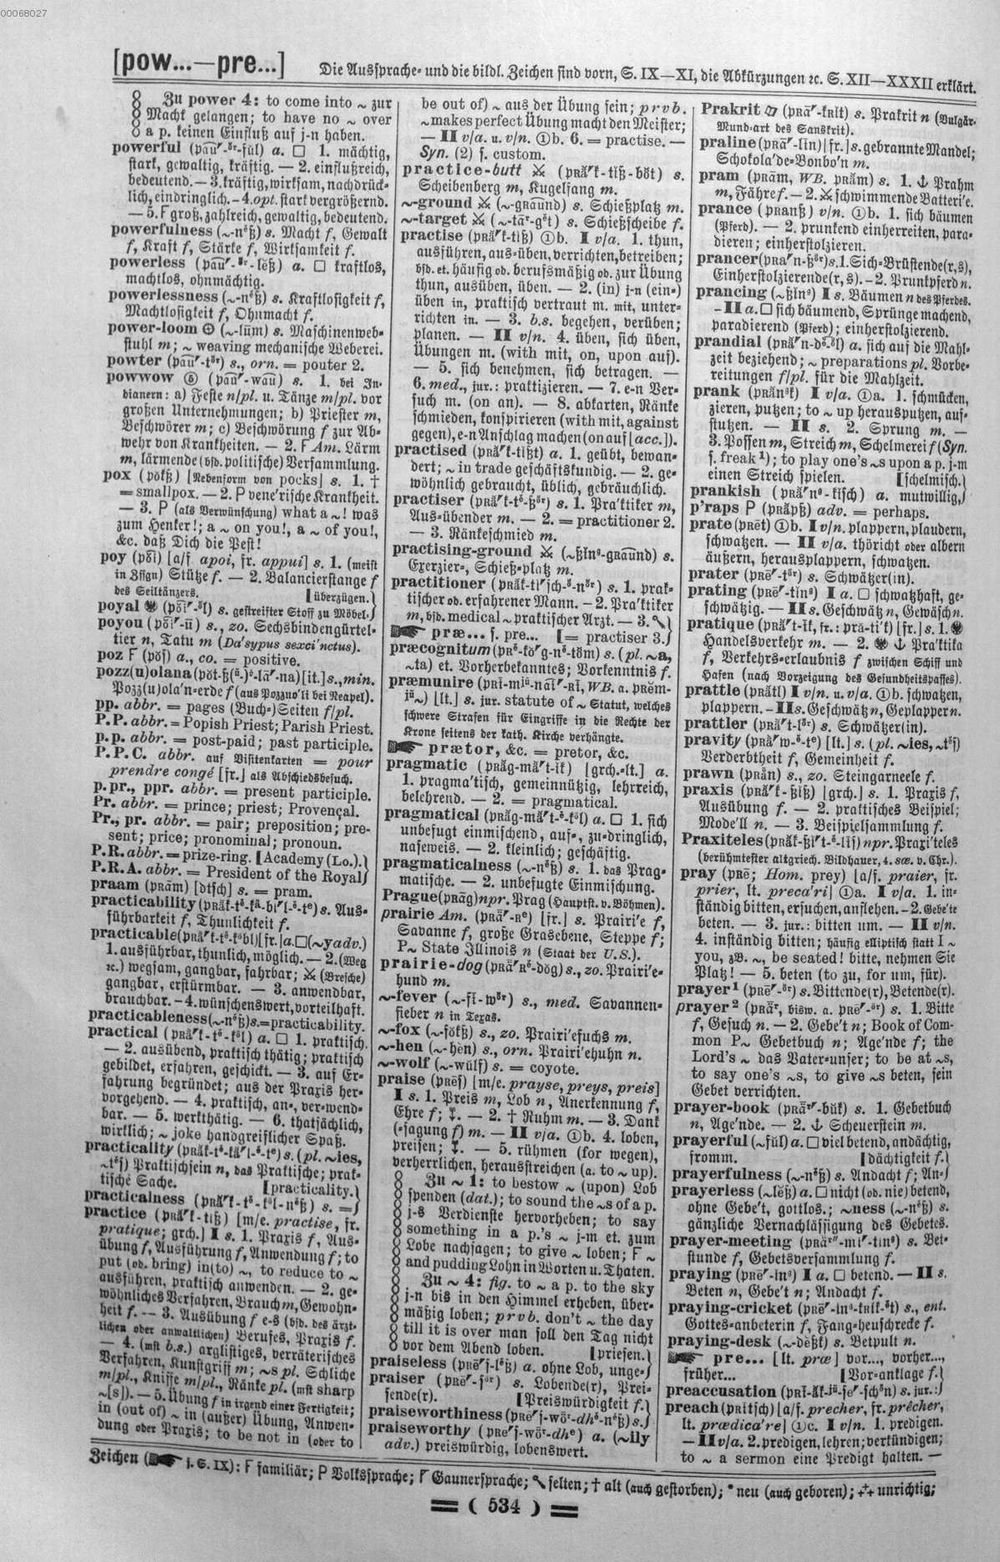 00068027
[pow...—pre...]
Die Aussprache- und die bildl. Zeichen sind vorn, S. IX—XI, die Abkürzungen ꝛc. S. XII—XXXII erklärt.
Zu power 4: to come into ~ zur
Macht gelangen; to have no ~ over
a p. keinen Einfluß auf j-n haben.
powerful a. □ 1. mächtig,
stark, gewaltig, kräftig. — 2. einflußreich,
bedeutend. — 3. kräftig, wirksam, nachdrück-
lich, eindringlich. - 4. opt. stark vergrößernd.
— 5. F groß, zahlreich, gewaltig, bedeutend.
powerfulness (~-nᵉß) s. Macht f, Gewalt
f, Kraft f, Stärke f, Wirksamkeit f.
powerless a. □ kraftlos,
machtlos, ohnmächtig.
powerlessness (~-nᵉß) s. Kraftlosigkeit f,
Machtlosigkeit f, Ohnmacht f.
power-loom (~-lūm) s. Maschinenweb-
stuhl m; ~ weaving mechanische Weberei.
powter s., orn. = pouter 2.
powwow s. 1. bei In-
dianern: a) Feste n/pl. u. Tänze m/pl. vor
großen Unternehmungen; b) Priester m,
Beschwörer m; c) Beschwörung f zur Ab-
wehr von Krankheiten. — 2. F Am. Lärm
m, lärmende (bsd. politische) Versammlung.
pox (pŏkß) [Nebenform von pocks] s. 1. †
= smallpox. — 2. P vene'rische Krankheit.
— 3. P (als Verwünschung) what a ~! was
zum Henker!; a ~ on you!, a ~ of you!,
&c. daß Dich die Pest!
poy (pŏi) [a/f apoi, fr. appui] s. 1. (meist
in Zssgn) Stütze f. — 2. Balancierstange f
des Seiltänzers. [überzügen.]
poyal s. gestreifter Stoff zu Möbel-
poyou s., zo. Sechsbindengürtel-
tier n, Tatu m (Da'sypus sexci'nctus).
poz F (pŏs) a., co. = positive.
pozz(u)olana [it.] s., min.
Pozz(u)ola'n-erde f (aus Pozzuo'li bei Neapel).
pp. abbr. = pages (Buch-)Seiten f/pl.
P.P. abbr. = Popish Priest; Parish Priest.
p.p. abbr. = post-paid; past participle.
P.P.C. abbr. auf Visitenkarten = pour
prendre congé [fr.] als Abschiedsbesuch.
p.pr., ppr. abbr. = present participle.
Pr. abbr. = prince; priest; Provençal.
Pr., pr. abbr. = pair; preposition; pre-
sent; price; pronominal; pronoun.
P.R. abbr. = prize-ring. [Academy (Lo.).]
P.R.A. abbr. = President of the Royal
praam (prām) [dtsch] s. = pram.
practicability s. Aus-
führbarkeit f, Thunlichkeit f.
practicable [fr.] a. □ (~y adv.)
1. ausführbar, thunlich, möglich. — 2. (Weg
ꝛc.) wegsam, gangbar, fahrbar; ⚔ (Bresche)
gangbar, erstürmbar. — 3. anwendbar,
brauchbar. - 4. wünschenswert, vorteilhaft.
practicableness (~-nᵉß) s. = practicability.
practical a. □ 1. praktisch.
— 2. ausübend, praktisch thätig; praktisch
gebildet, erfahren, geschickt. — 3. auf Er-
fahrung begründet; aus der Praxis her-
vorgehend. — 4. praktisch, an-, ver-wend-
bar. — 5. werkthätig. — 6. thatsächlich,
wirklich; ~ joke handgreiflicher Spaß.
practicality s. (pl. ~ies,
Praktischsein n, das Praktische; prak-
tische Sache. [practicality.]
practicalness s. =
practice [m/e. practise, fr.
pratique; grch.] I s. 1. Praxis f, Aus-
übung f, Ausführung f, Anwendung f; to
put (ob. bring) in(to) ~, to reduce to ~
ausführen, praktisch anwenden. — 2. ge-
wöhnliches Verfahren, Brauch m, Gewohn-
heit f. — 3. Ausübung f e-s (bsd. des ärzt-
lichen oder anwaltlichen) Berufes, Praxis f.
— 4. (mst b.s.) arglistiges, verräterisches
Verfahren, Kunstgriff m; ~s pl. Schliche
m/pl., Kniffe m/pl., Ränke pl. (mst sharp
~[s]). — 5. Übung f in irgend einer Fertigkeit;
in (out of) ~ in (außer) Übung, Anwen-
dung oder Praxis; to be not in (oder to
be out of) ~ aus der Übung sein; prvb.
~ makes perfect Übung macht den Meister;
— II v/a. u. v/n. ①b. 6. = practise. —
Syn. (2) s. custom.
practice-butt ⚔ s.
Scheibenberg m, Kugelfang m.
~-ground ⚔ s. Schießplatz m.
~-target ⚔ s. Schießscheibe f.
practise ①b. I v/a. 1. thun,
ausführen, aus-üben, verrichten, betreiben;
bsd. et. häufig ob. berufsmäßig ob. zur Übung
thun, ausüben, üben. — 2. (in) j-n (ein-)
üben in, praktisch vertraut m. mit, unter-
richten in. — 3. b.s. begehen, verüben;
planen. — II v/n. 4. üben, sich üben,
Übungen m. (with mit, on, upon auf).
— 5. sich benehmen, sich betragen. —
6. med., jur.: praktizieren. — 7. e-n Ver-
such m. (on an). — 8. abkarten, Ränke
schmieden, konspirieren (with mit, against
gegen), e-n Anschlag machen (on auf [acc.]).
practised a. 1. geübt, bewan-
dert; ~ in trade geschäftskundig. — 2. ge-
wöhnlich gebraucht, üblich, gebräuchlich.
practiser s. 1. Pra'ktiker m,
Aus-übender m. — 2. = practitioner 2.
— 3. Ränkeschmied m.
practising-ground ⚔ s.
Exerzier-, Schieß-platz m.
practitioner s. 1. prak-
tischer ob. erfahrener Mann. — 2. Pra'ktiker
m, bsd. medical ~ praktischer Arzt. — 3.
præ... s. pre... [= practiser 3.]
præcognitum s. (pl. ~a,
~ta) et. Vorherbekanntes; Vorkenntnis f.
præmunire
[lt.] s. jur. statute of ~ Statut, welches
schwere Strafen für Eingriffe in die Rechte der
Krone seitens der kath. Kirche verhängte.
prætor, &c. = pretor, &c.
pragmatic [grch.-lt.] a.
1. pragma'tisch, gemeinnützig, lehrreich,
belehrend. — 2. = pragmatical.
pragmatical a. □ 1. sich
unbefugt einmischend, auf-, zu-dringlich,
naseweis. — 2. kleinlich; geschäftig.
pragmaticalness (~-nᵉß) s. 1. das Prag-
matische. — 2. unbefugte Einmischung.
Prague (prāg) npr. Prag (Hauptst. v. Böhmen).
prairie Am. [fr.] s. Prairi'e f,
Savanne f, große Grasebene, Steppe f;
P~ State Illinois n (Staat der U.S.).
prairie-dog s., zo. Prairi'e-
hund m.
~-fever s., med. Savannen-
fieber n in Texas.
~-fox (~-fŏkß) s., zo. Prairi'efuchs m.
~-hen (~-hĕn) s., orn. Prairi'ehuhn n.
~-wolf (~-wŭlf) s. = coyote.
praise (prēs) [m/e. prayse, preys, preis]
I s. 1. Preis m, Lob n, Anerkennung f,
Ehre f; — 2. † Ruhm m. — 3. Dank
(-sagung f) m. — II v/a. ①b. 4. loben,
preisen; — 5. rühmen (for wegen),
verherrlichen, herausstreichen (a. to ~ up).
Zu ~ 1: to bestow ~ (upon) Lob
spenden (dat.); to sound the ~s of a p.
j-s Verdienste hervorheben; to say
something in a p.'s ~ j-m et. zum
Lobe nachsagen; to give ~ loben; F ~
and pudding Lohn in Worten u. Thaten.
Zu ~ 4: fig. to ~ a p. to the sky
j-n bis in den Himmel erheben, über-
mäßig loben; prvb. don't ~ the day
till it is over man soll den Tag nicht
vor dem Abend loben. [priesen.]
praiseless a. ohne Lob, unge-
praiser s. Lobende(r), Prei-
sende(r). [Preiswürdigkeit f.]
praiseworthiness s.
praiseworthy a. (~ily
adv.) preiswürdig, lobenswert.
Prakrit s. Prakrit n (Vulgär-
Mund-art des Sanskrit).
praline [fr.] s. gebrannte Mandel;
Schokola'de-Bonbo'n m.
pram (prăm, WB. prām) s. 1. ⚓ Prahm
m, Fähre f. — 2. ⚔ schwimmende Batteri'e.
prance v/n. ①b. 1. sich bäumen
(Pferd). — 2. prunkend einherreiten, para-
dieren; einherstolzieren.
prancer s. 1. Sich-Brüstende(r, s),
Einherstolzierende(r, s). - 2. Prunkpferd n.
prancing I s. Bäumen n des Pferdes.
- II a. □ sich bäumend, Sprünge machend,
paradierend (Pferd); einherstolzierend.
prandial a. sich auf die Mahl-
zeit beziehend; ~ preparations pl. Vorbe-
reitungen f/pl. für die Mahlzeit.
prank I v/a. ①a. 1. schmücken,
zieren, putzen; to ~ up herausputzen, auf-
stutzen. — II s. 2. Sprung m. —
3. Possen m, Streich m, Schelmerei f (Syn.
s. freak¹); to play one's ~s upon a p. j-m
einen Streich spielen. [schelmisch.]
prankish a. mutwillig,
p'raps P (prăpß) adv. = perhaps.
prate (prēt) ①b. I v/n. plappern, plaudern,
schwatzen. — II v/a. thöricht oder albern
äußern, herausplappern, schwatzen.
prater s. Schwätzer(in).
prating I a. □ schwatzhaft, ge-
schwätzig. — II s. Geschwätz n, Gewäsch n.
pratique [fr.] s. 1.
Handelsverkehr m. — 2. ⚓ Pra'ktika
f, Verkehrs-erlaubnis f zwischen Schiff und
Hafen (nach Vorzeigung des Gesundheitspasses).
prattle (prătl) I v/n. u. v/a. ①b. schwatzen,
plappern. — II s. Geschwätz n, Geplapper n.
prattler s. Schwätzer(in).
pravity [lt.] s. (pl. ~ies,
Verderbtheit f, Gemeinheit f.
prawn (prån) s., zo. Steingarneele f.
praxis [grch.] s. 1. Praxis f,
Ausübung f. — 2. praktisches Beispiel;
Mode'll n. — 3. Beispielsammlung f.
Praxiteles npr. Praxi'teles
(berühmtester altgriech. Bildhauer, 4. sæc. v. Chr.).
pray (prē; Hom. prey) [a/f. praier, fr.
prier, lt. preca'ri] ①a. I v/a. 1. in-
ständig bitten, ersuchen, anflehen. - 2. Gebe'te
beten. — 3. jur.: bitten um. — II v/n.
4. inständig bitten; häufig elliptisch statt I ~
you, zB. ~, be seated! bitte, nehmen Sie
Platz! — 5. beten (to zu, for um, für).
prayer¹ s. Bittende(r), Betende(r).
prayer² s. 1. Bitte
f, Gesuch n. — 2. Gebe't n; Book of Com-
mon P~ Gebetbuch n; Age'nde f; the
Lord's ~ das Vater-unser; to be at ~s,
to say one's ~s, to give ~s beten, sein
Gebet verrichten.
prayer-book s. 1. Gebetbuch
n, Age'nde. — 2. ⚓ Scheuerstein m.
prayerful (~fŭl) a. □ viel betend, andächtig,
fromm. [dächtigkeit f.]
prayerfulness (~-nᵉß) s. Andacht f; An-
prayerless (~lĕß) a. □ nicht (ob. nie) betend,
ohne Gebe't, gottlos.; ~ness (~-nᵉß) s.
gänzliche Vernachlässigung des Gebetes.
prayer-meeting s. Bet-
stunde f, Gebetsversammlung f.
praying I a. □ betend. — II s.
Beten n, Gebe't n; Andacht f.
praying-cricket s., ent.
Gottes-anbeterin f, Fang-heuschrecke f.
praying-desk (~-dĕßk) s. Betpult n.
pre... [lt. præ] vor..., vorher...,
früher... [Vor-anklage f.]
preaccusation s. jur.:
preach (prītsch) [a/f. precher, fr. prêcher,
lt. prædica're] ①c. I v/n. 1. predigen.
— II v/a. 2. predigen, lehren; verkündigen;
to ~ a sermon eine Predigt halten. —
Zeichen (s. S. IX): F familiär; P Volkssprache; Γ Gaunersprache; selten; † alt (auch gestorben); * neu (auch geboren); unrichtig;
( 534 )